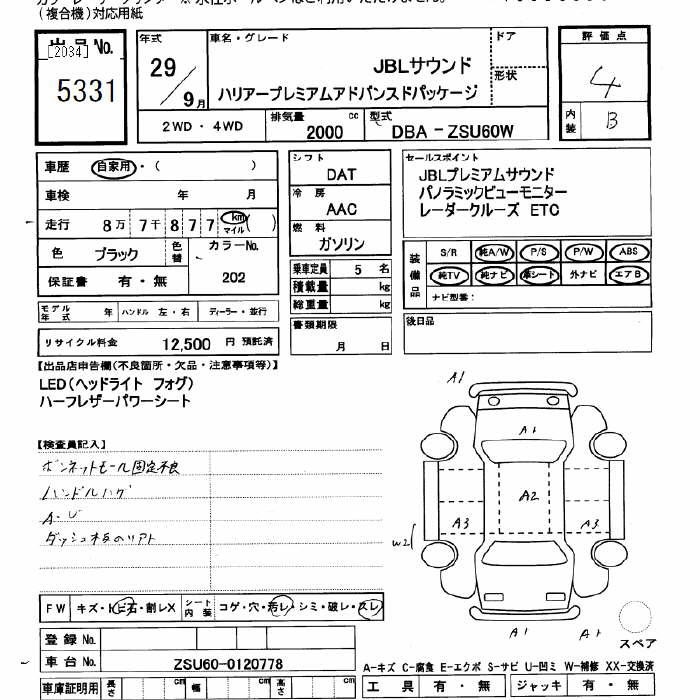 (複合機)対応用紙
出品No.
[2034]
5331
年式
29/9月
車名・グレード
JBLサウンド
ハリアープレミアムアドバンスドパッケージ
ドア
形状
2WD・4WD
排気量
2000 cc
型式
DBA-ZSU60W
評価点
4
内装
B
車歴 自家用・( )
車検 年 月
走行 8万7千877 km マイル ( )
色 ブラック 色替 カラーNo. 202
保証書 有・無
モデル年式 年 ハンドル 左・右 ディーラー・並行
リサイクル料金 12,500 円 預託済
シフト
DAT
冷房
AAC
燃料
ガソリン
乗車定員 5 名
積載量 kg
総重量 kg
書類期限
月 日
セールスポイント
JBLプレミアムサウンド
パノラミックビューモニター
レーダークルーズ ETC
装備品
S/R 純A/W P/S P/W ABS
純TV 純ナビ 革シート 外ナビ エアB
ナビ型番:
後日品
【出品店申告欄(不良箇所・欠品・注意事項等)】
LED(ヘッドライト フォグ)
ハーフレザーパワーシート
【検査員記入】
ボンネットモール固定不良
ハンドルハゲ
FW キズ・トビ石・割レX シート内装 コゲ・穴・汚レ・シミ・破レ・スレ
登録No.
車台No. ZSU60-0120778
車庫証明用 長さ cm 幅 cm 高さ cm
A1
A1
A2
A3
A3
W2
A1
A1
スペア
A-キズ C-腐食 E-エクボ S-サビ U-凹ミ W-補修 XX-交換済
工具 有・無 ジャッキ 有・無